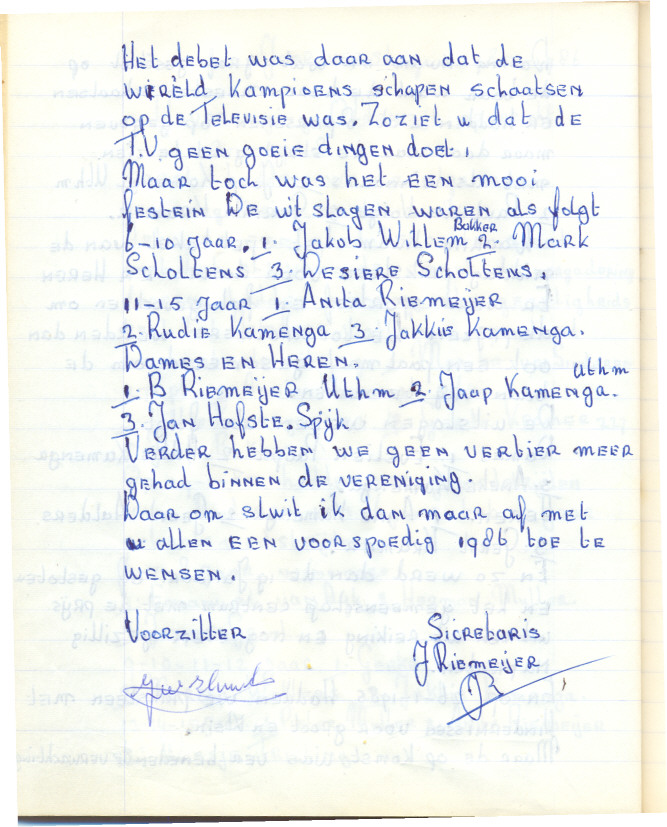 Het debet was daar aan dat de
wereld kampioens schapen schaatsen
op de Televisie was. Zoziet u dat de
T.V geen goeie dingen doet.
Maar toch was het een mooi
festein De uit slagen waren als volgt
6-10 Jaar. 1. Jakob Willem Bakker 2. Mark
Scholtens 3. Desiere Scholtens.
11-15 Jaar 1. Anita Riemeijer
2. Rudie Kamenga 3. Jakkie Kamenga.
Dames en Heren.
1. B Riemeijer Uthm 2. Jaap Kamenga. Uthm
3. Jan Hofste. Spijk
Verder hebben we geen vertier meer
gehad binnen de vereniging.
Daar om sluit ik dan maar af met
u allen een voorspoedig 1986 toe te
wensen.
Voorzitter Sicretaris
J Riemeijer